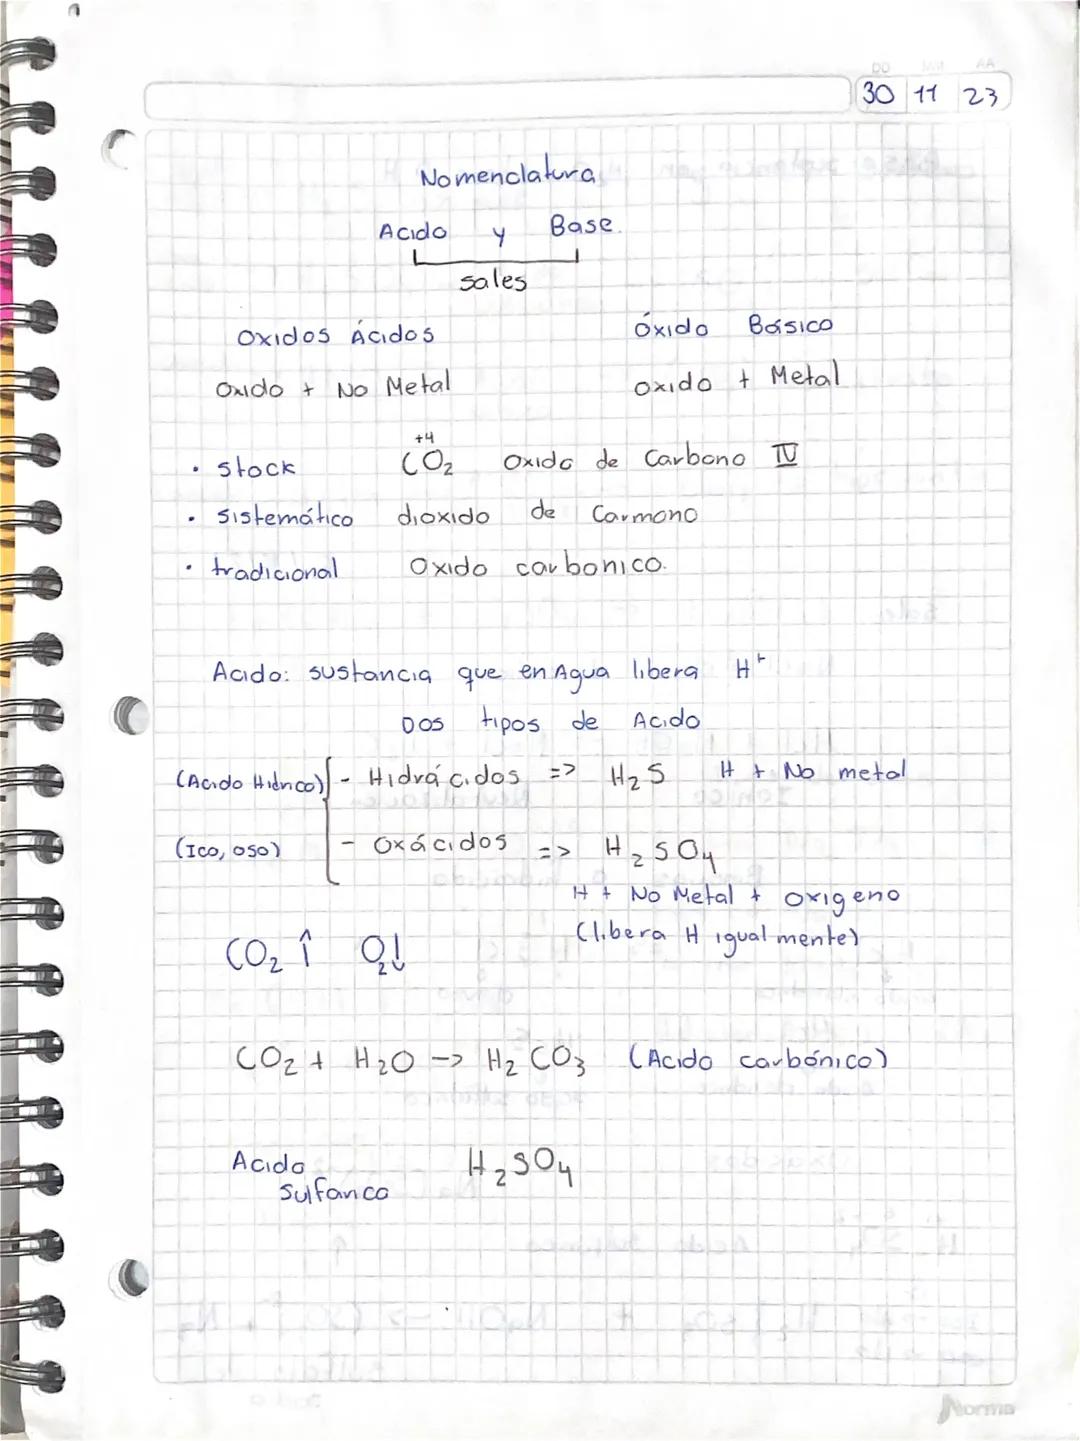 DD MM AA
30 11 23
Nomenclatura
Acido y Base.
sales
Oxidos Ácidos óxido Básico
Oxido + No Metal oxido + Metal
• stock +4 CO2 Oxido de Carbono IV
• sistemático dioxido de Carmono
• tradicional Oxido carbonico.
Acido: sustancia que en Agua libera H+
DOS tipos de Acido
(Acido Hidrico) - Hidrácidos => H2S H + No metal
(Ico, oso) - Oxácidos => H2SO4
H + No Metal + oxigeno
(libera H igual mente)
CO2 ↑ O2↓
CO2 + H2O -> H2CO3 (Acido carbónico)
Acido H2SO4
Sulfanco
Norma